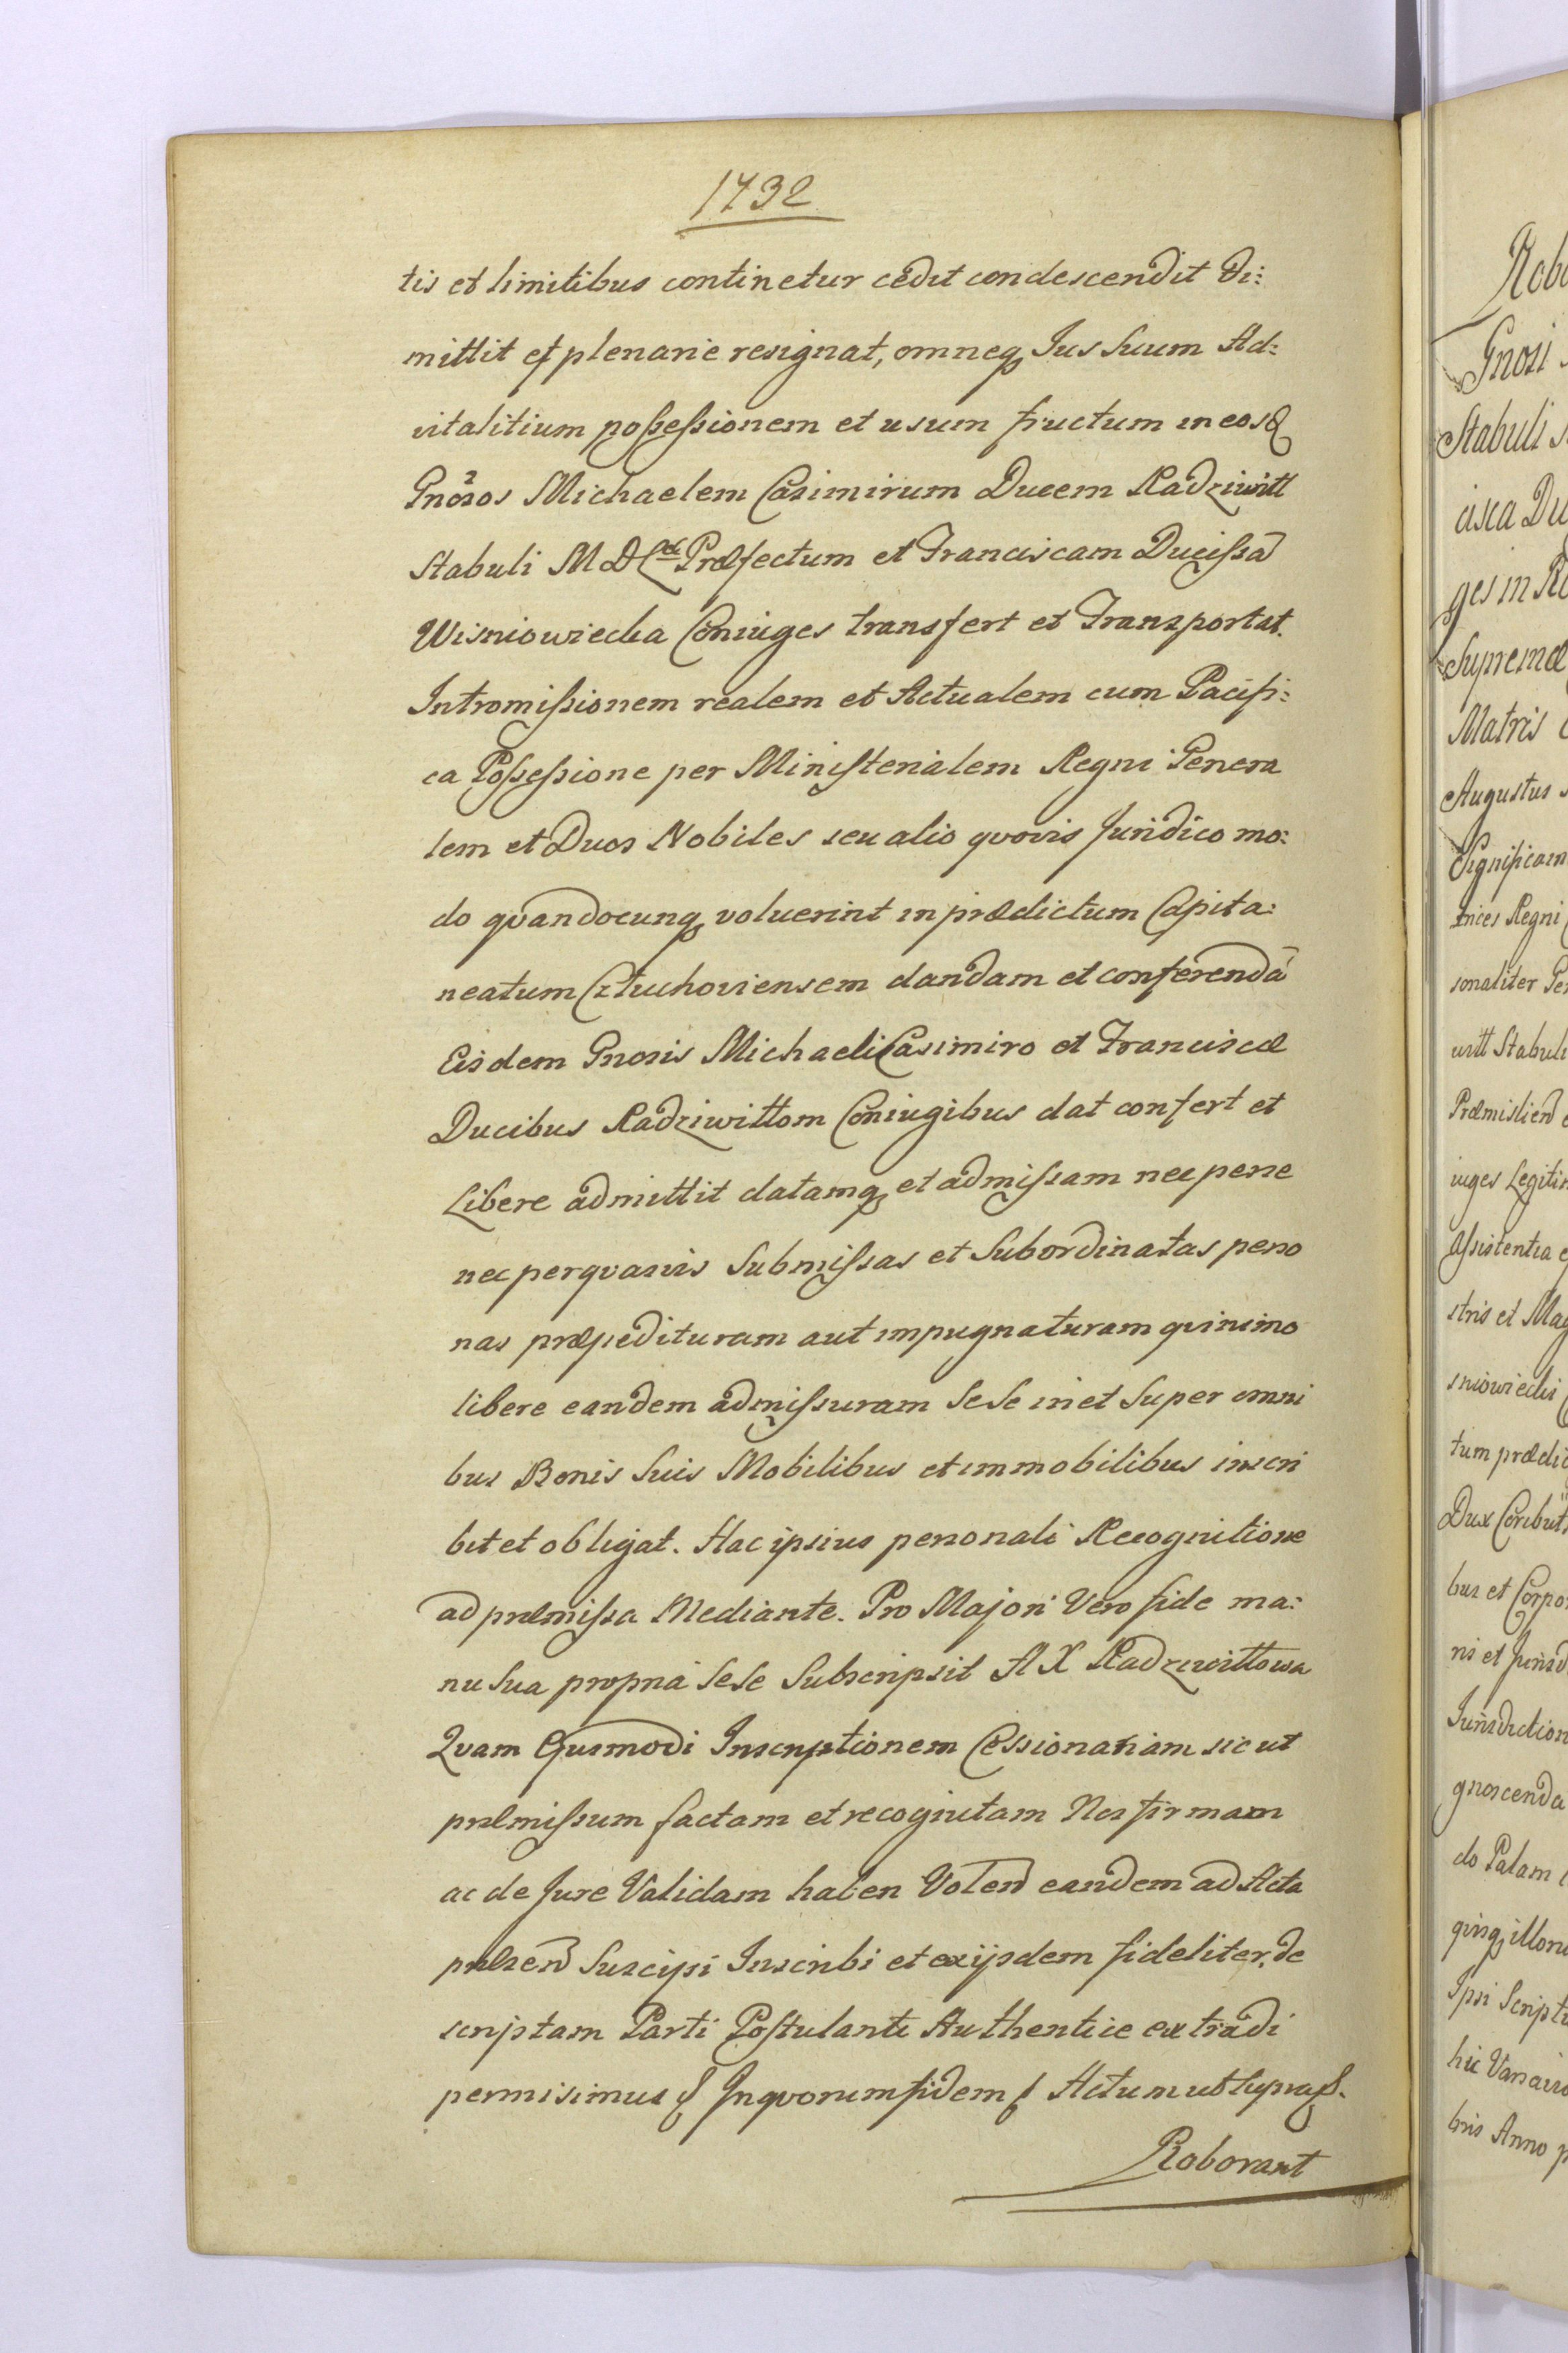 1732
tis et limitibus continetur cedit condescendit di:
mittit et plenarie resignat, omneq Ius Suum Ad:
vitalitium possessionem et usum fructum in eosd
Gnosos Michaelem Casimirum Ducem Radziwitt
Stabuli M D L Præfectum et Franciscam Ducissã
Wisniowiecka Coniuges transfert et Transportat.
Intromissionem realem et Actualem cum Pacifi:
ca Possessione per Ministerialem Regni Genera
lem et Duos Nobiles seu alio qvovis Juridico mo:
do qvandocunq voluerint in prædictum Capita:
neatum Cztuchoviensem dandam et conferendã
Eisdem Gnosis Michaeli Casimiro et Franciscæ
Ducibus Radziwittom Coniugibus dat confert et
Libere admittit datamq et admissam nec per se
nec per qvasvis Submissas et Subordinatas perso
nas præpedituram aut impugnaturam qvinimo
libere eandem admissuram Se Se in et Super omni
bus Bonis Suis Mobilibus et immobilibus inscri
bit et obligat. Hac ipsius personali Recognitione
ad præmissa Mediante. Pro Majori Vero fide ma:
nu Sua propria Se Se Subscripsit A X Radziwittowa
Qvam Ejusmodi Inscriptionem Cessionariam sic ut
præmissum factam et recognitam Nos firmam
ac de Jure Validam haben Volend eandem ad Acta
præsend Suscipi Inscribi et ex ijsdem fideliter de
scriptam Parti Postulanti Authentice extradi
permisimus In qvorum fidem Actum ut Supra
Roborant

Robo
Gnosi
Stabuli
cisca Du
ges in R
Supremæ
Matris
Augustus
Significam
nices Regni
sonaliter Ge
witt Stabuli
Præmislien
iuges Legiti
Assistentia
stris et Mag
sniowiecki
tum prædic
Dux Coribut
bus et Corpo
ni et Jurisd
Jurisdiction
gnoscenda
do Palam
qvisq illoru
Ipsi Script
hic Varsavi
bris Anno p